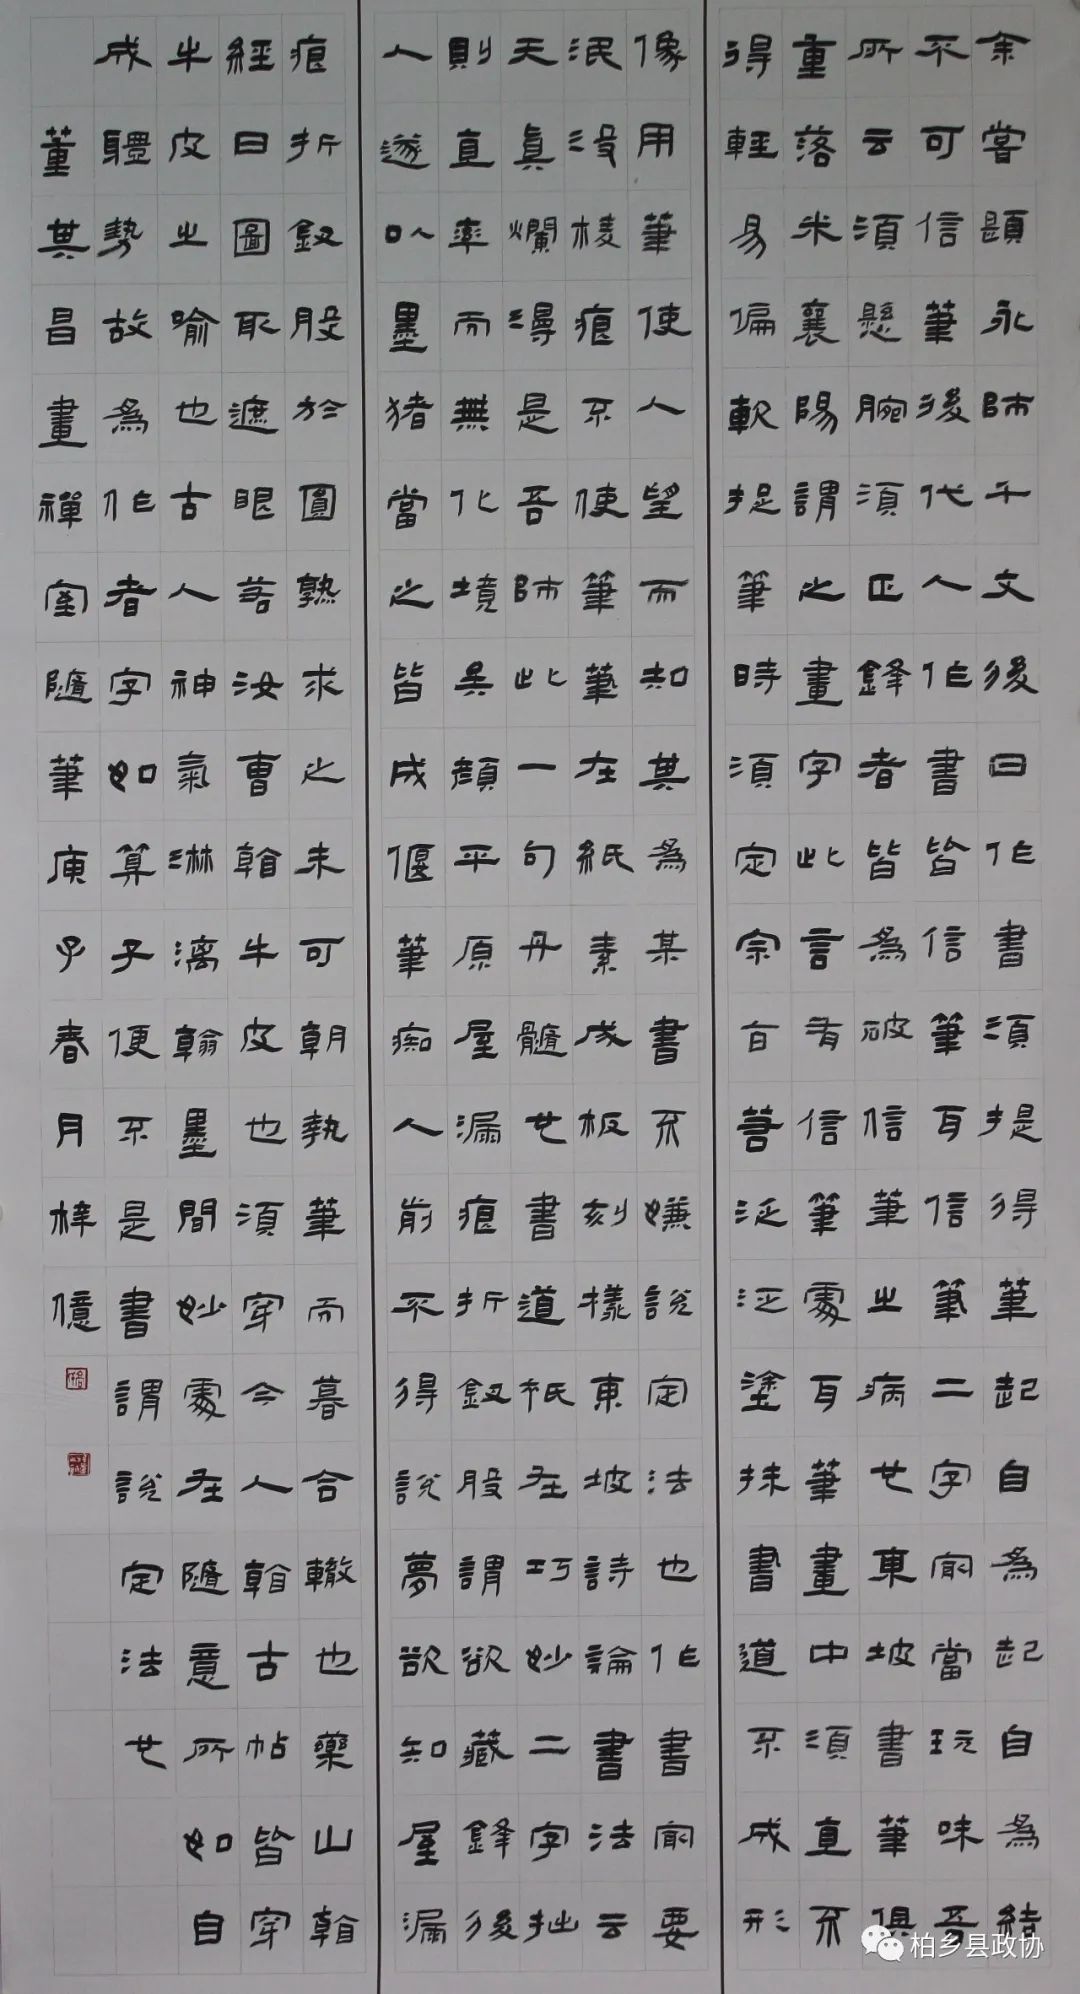 余嘗題永師千文後曰作書須提得筆起自為起自為結
不可信筆後代人作書皆信筆耳信筆二字最當玩味吾
所云須懸腕須正鋒者皆為破信筆之病也東坡書筆俱
重落米襄陽謂之畫字此言有信筆處耳筆畫中須直不
得輕易偏軟捉筆時須定宗旨若泛泛塗抹書道不成形
像用筆使人望而知其為某書不嫌說定法也作書最要
泯沒棱痕不使筆筆在紙素成板刻樣東坡詩論書法云
天真爛漫是吾師此一句丹髓也書道祇在巧妙二字拙
則直率而無化境吳顏平原屋漏痕折釵股謂欲藏鋒後
人遂以墨猪當之皆成偃筆痴人前不得說夢欲知屋漏
痕折釵股於圓熟求之未可朝執筆而暮合轍也藥山看
經曰圖取遮眼若汝曹看牛皮也須穿今人看古帖皆穿
牛皮之喻也古人神氣淋漓翰墨間妙處在隨意所如自
成體勢故為作者字如算子便不是書謂說定法也
董其昌畫禪室隨筆庚子春月梓億
柏乡县政协